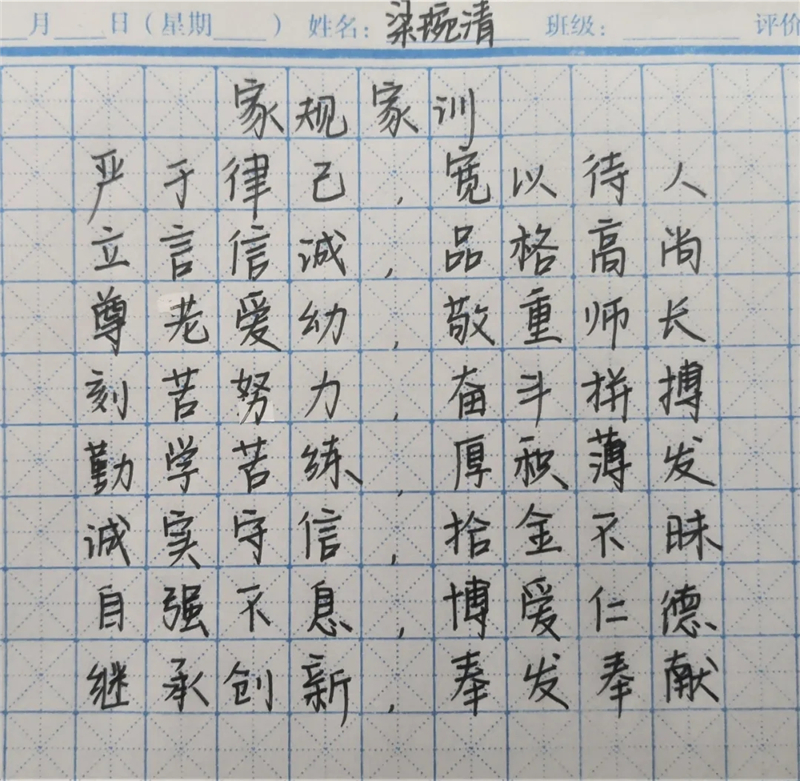 月 日（星期 ） 姓名：梁琬清 班级： 评价
家规家训
严于律己，宽以待人
立言信诚，品格高尚
尊老爱幼，敬重师长
刻苦努力，奋斗拼搏
勤学苦练，厚积薄发
诚实守信，拾金不昧
自强不息，博爱仁德
继承创新，奉发奉献